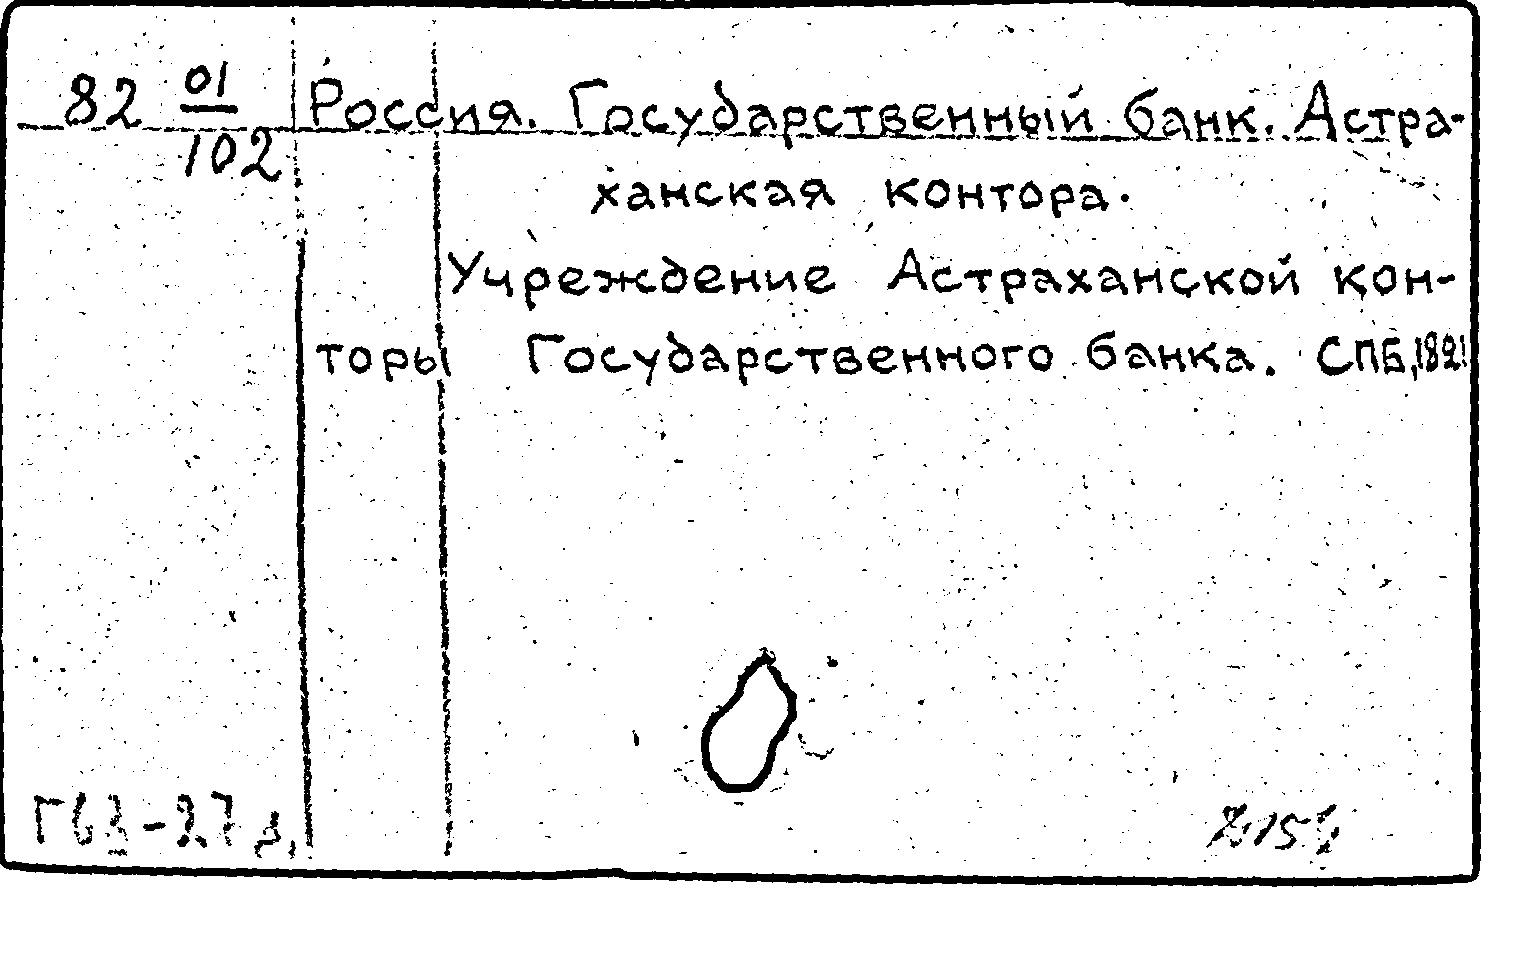 82 01/102 Россия. Государственный банк. Астра-
ханская контора.
Учреждение Астраханской кон-
торы Государственного банка. СПБ, 1821
Г63-27